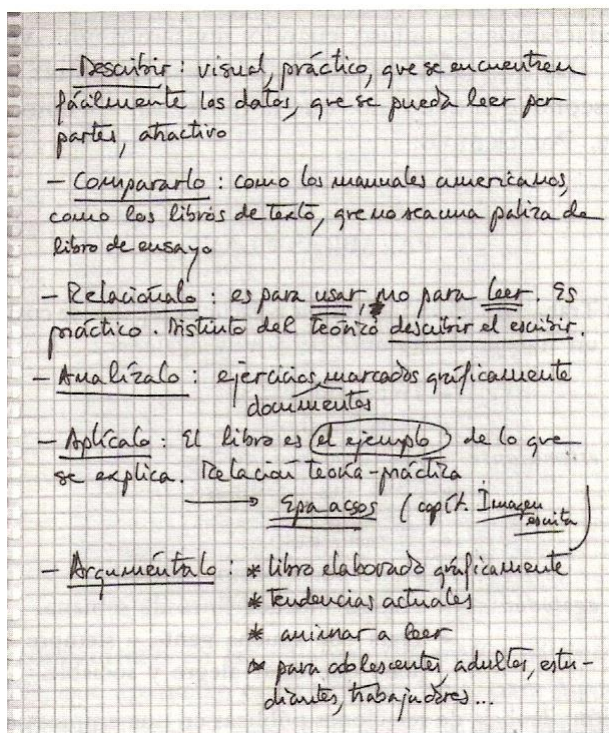 - Describir : visual, práctico, que se encuentren
fácilmente los datos, que se pueda leer por
partes, atractivo
- Compararlo : como los manuales americanos,
como los libros de texto, que no sea una paliza de
libro de ensayo
- Relaciónalo : es para usar, no para leer. Es
práctico. Distinto del teórico describir el escribir.
- Analízalo : ejercicios, marcados gráficamente
documentos
- Aplícalo : El libro es el ejemplo de lo que
se explica. Relación teoría-práctica
(capít. Imagen
escrita
- Arguméntalo : * libro elaborado gráficamente
* tendencias actuales
* animar a leer
* para adolescentes, adultos, estu-
diantes, trabajadores...